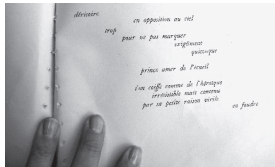 dérisoire
en opposition au ciel
trop
pour ne pas marquer
exigeance
quiconque
prince amer de l'écueil
s'en coiffe comme de l'héroïque
irrésistible mais contenu
par sa petite raison virile
en foudre